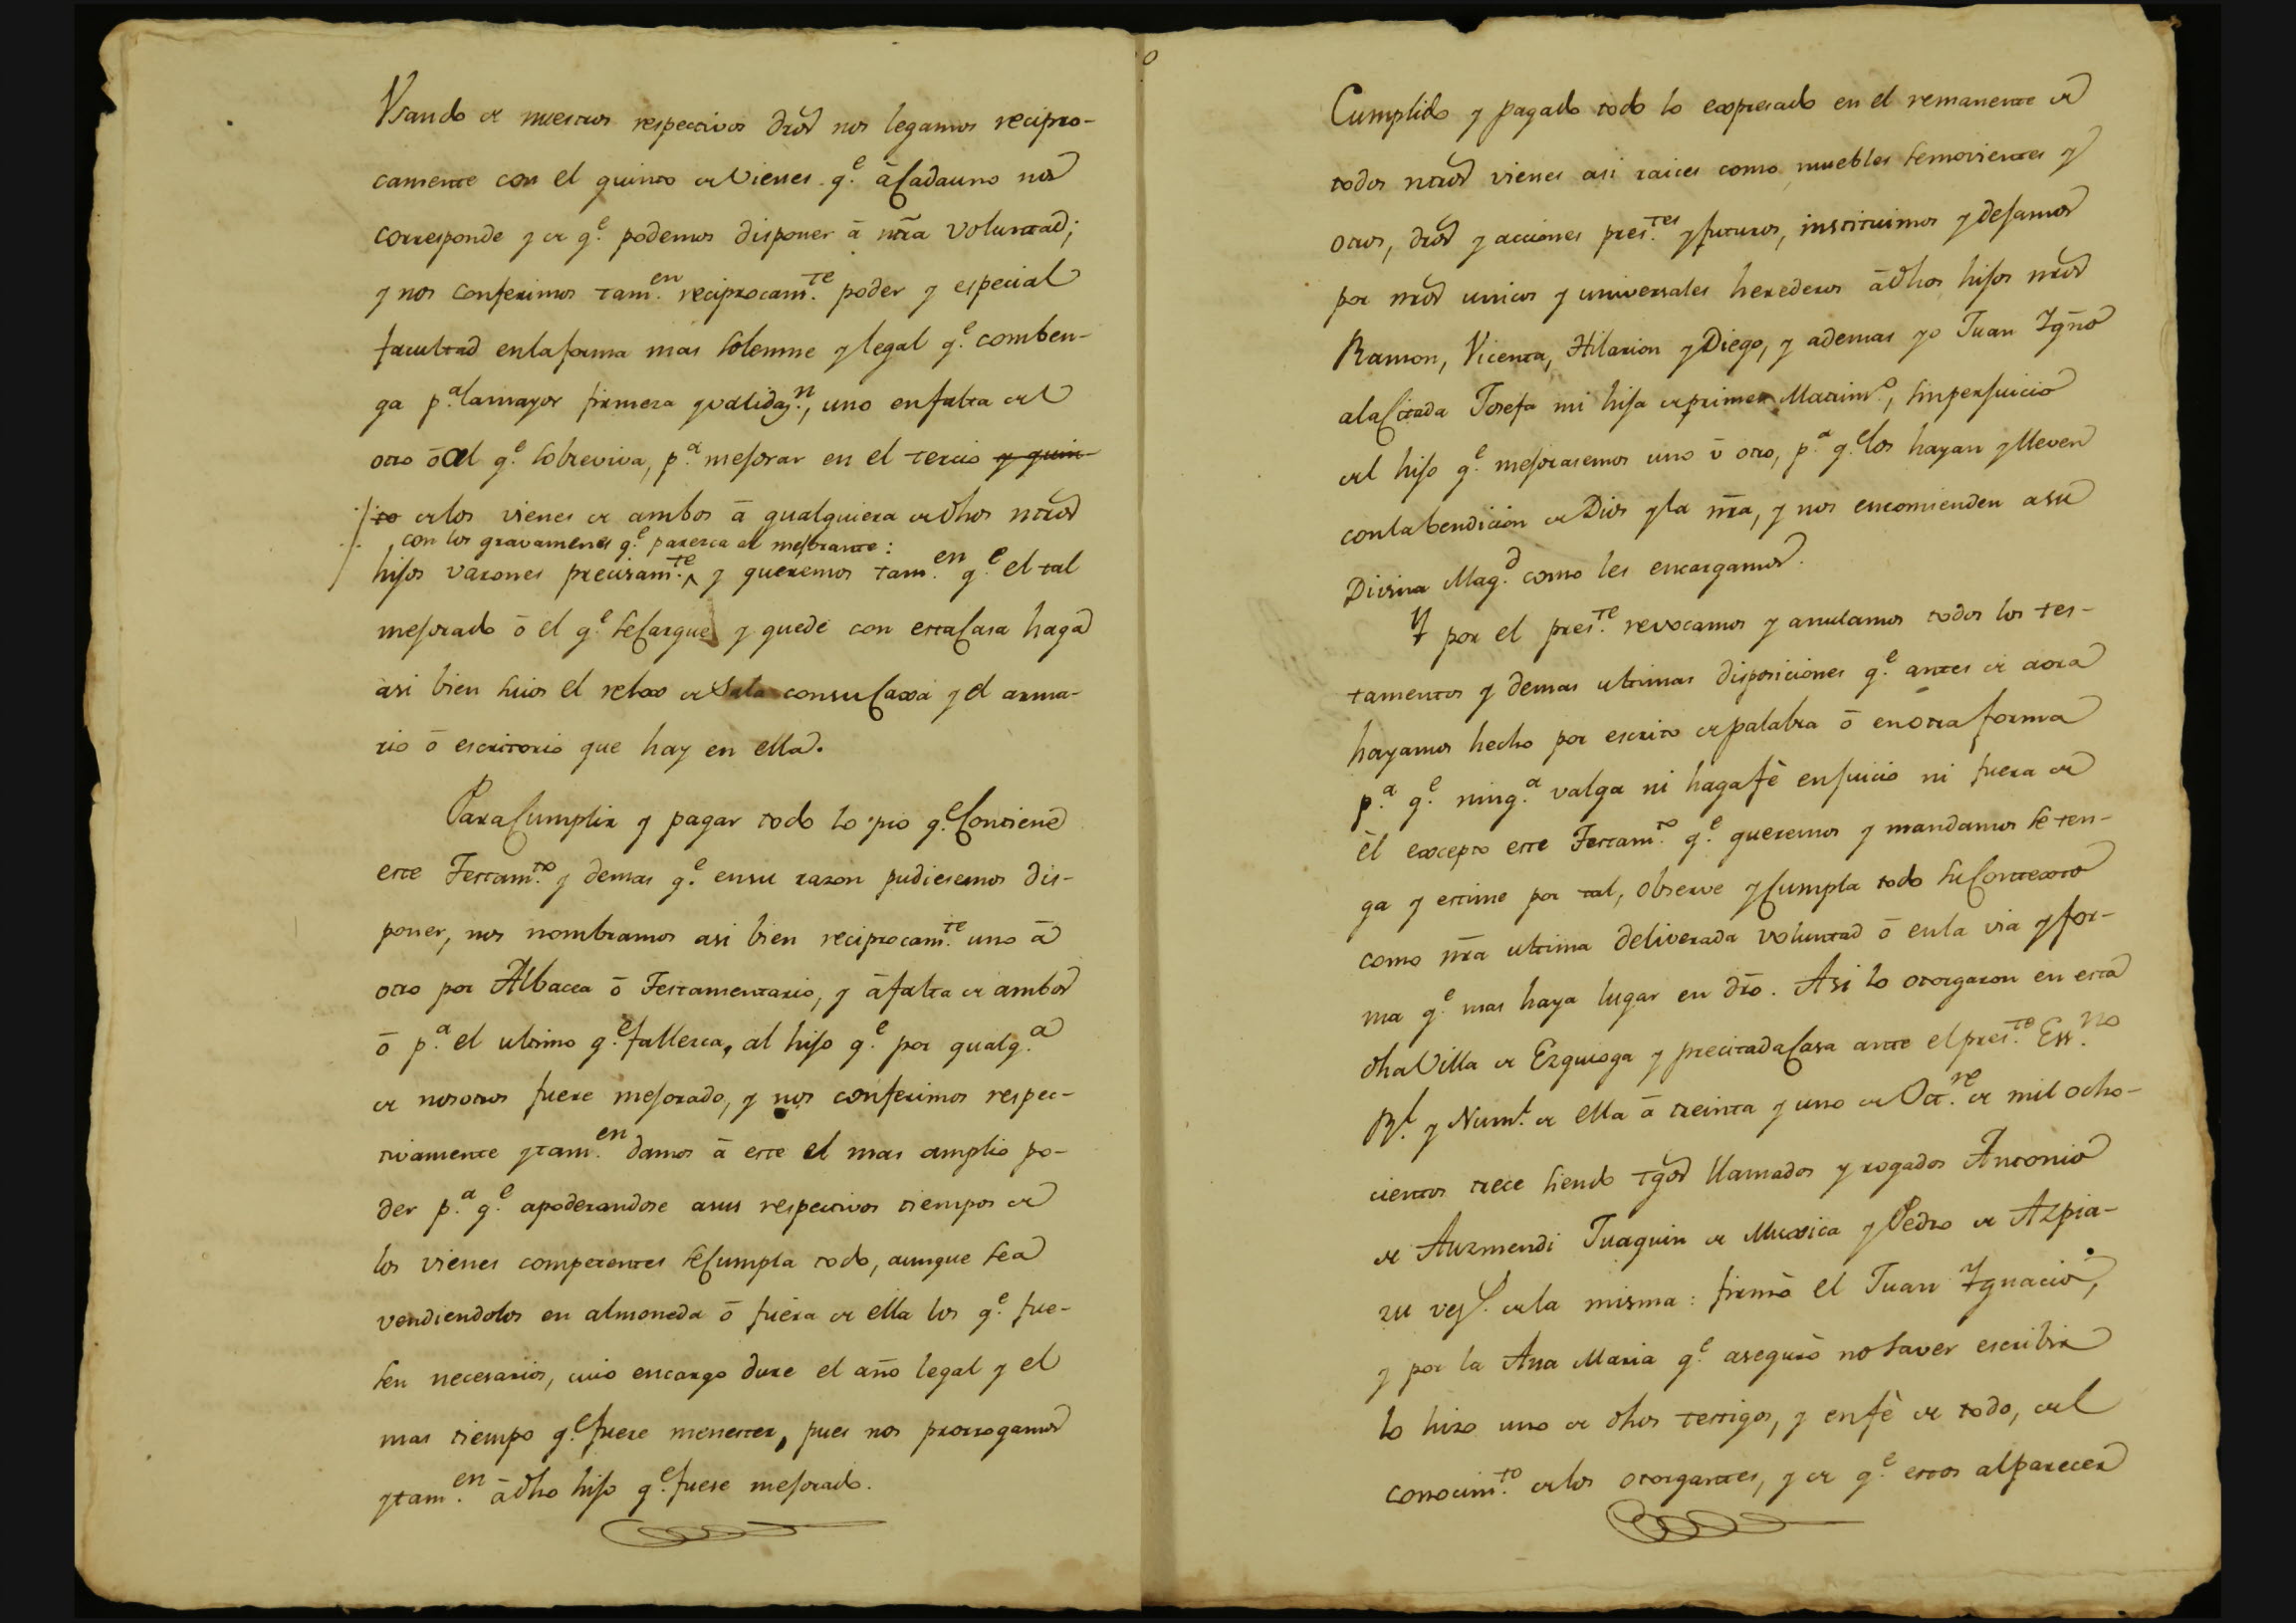 Usando de nuestros respectivos dros nos legamos recipro-
camente con el quinto de Vienes q.e â Cadauno nos
corresponde y de q.e podemos disponer â ntra Voluntad;
y nos conferimos tam.en reciprocam.te poder y especial
facultad enlaforma mas solemne y legal q.e comben-
ga p.a lamayor firmeza yvalidaz.n, uno enfalta del
otro ô al q.e sobreviva, p.a mejorar en el tercio y quin-
to delos vienes de ambos â qualquiera de dhos ntros
, con los gravamenes q.e paresca al mejorante:
hijos varones precisam.te, y queremos tam.en q.e el tal
mejorado ô el q.e seCargue y quede con estaCasa haga
asi bien suios el relox de Sala consuCaxa y el arma-
rio ô escritorio que hay en ella.
ParaCumplir y pagar todo lo pio q.e Contiene
este Testam.to y demas q.e ensu razon pudiesemos dis-
poner, nos nombramos asi bien reciprocam.te uno â
otro por Albacea ô Testamentario, y âfalta de ambos
ô p.a el ultimo q.e fallesca, al hijo q.e por qualq.a
de nosotros fuere mejorado, y nos conferimos respec-
tivamente ytam.en damos â este el mas amplio po-
der p.a q.e apoderandose asus respectivos tiempos de
los vienes competentes seCumpla todo, aunque sea
vendiendolos en almoneda ô fuera de ella los q.e fue-
sen necesarios, cuio encargo dure el año legal y el
mas tiempo q.e fuere menester, pues nos prorrogamos
ytam.en âdho hijo q.e fuese mejorado.
Cumplido y pagado todo lo expresado en el remanente de
todos ntros vienes asi raices como muebles semovientes y
otros, dros y acciones pres.tes y futuros, instituimos y dejamos
por ntros unicos y universales herederos âdhos hijos ntros
Ramon, Vicenta, Hilarion y Diego, y ademas yo Juan Ygño
alaCitada Josefa mi hija deprimer Matrim.o, sinperjuicio
del hijo q.e mejorasemos uno û otro, p.a q.e los hayan yLleven
conlabendicion de Dios yla ntra, y nos encomienden asu
Divina Mag.d como les encargamos.
Y por el pres.te revocamos y anulamos todos los tes-
tamentos y demas ultimas disposiciones q.e antes de aora
hayamos hecho por escrito depalabra ô enotra forma
p.a q.e ning.a valga ni hagafè enjuicio ni fuera de
èl excepto este Testam.to q.e queremos y mandamos se ten-
ga y estime por tal, observe yCumpla todo suContexto
como ntra ultima deliverada voluntad ô enla via yfor-
ma q.e mas haya lugar en dro. Asi lo otorgaron en esta
dhaVilla de Ezquioga y precitadaCasa ante elpres.te Ess.no
R.l y Num.l de ella â treinta y uno de Oct.re de mil ocho-
cientos trece siendo tgos llamados y rogados Antonio
de Auzmendi Juaquin de Muxica y Pedro de Azpia-
zu vez.s dela misma: firmò el Juan Ygnacio,
y por la Ana Maria q.e asegurò no saver escribir
lo hizo uno de dhos testigos, y enfè de todo, del
conocim.to delos otorgantes, y de q.e estos alparecer